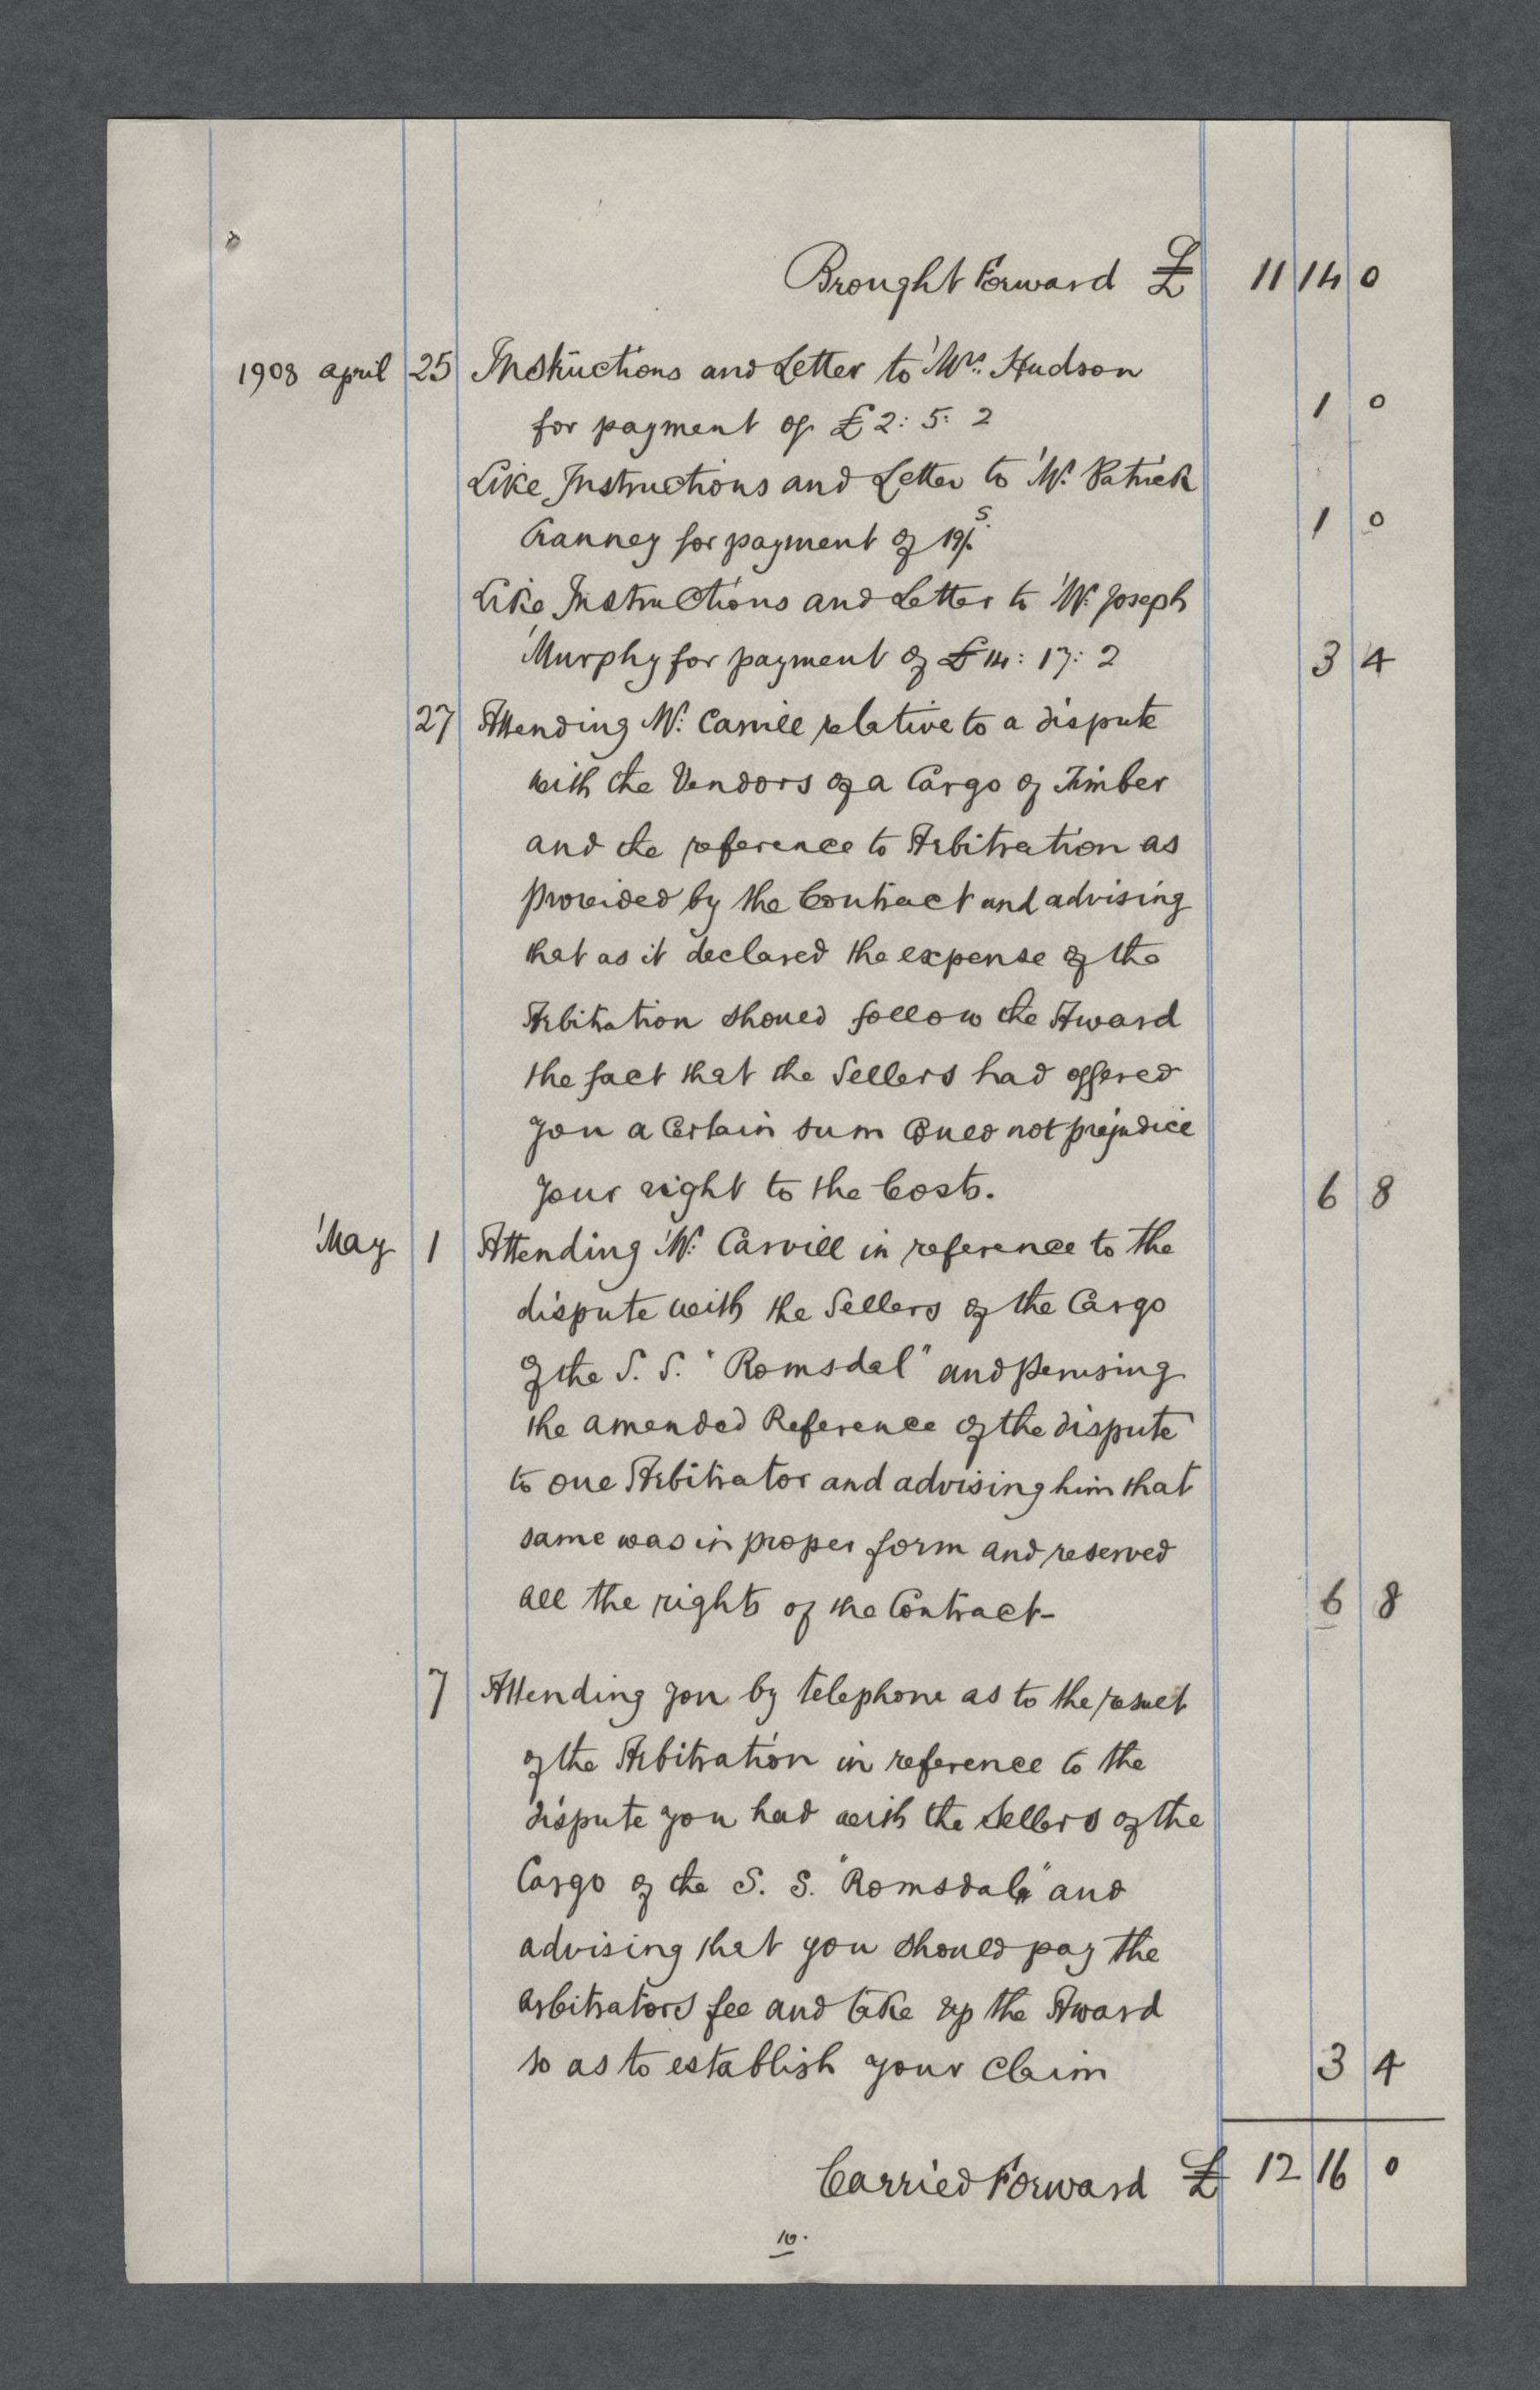 Brought Forward £ 11 14 0
1908 april 25 Instructions and Letter to Mrs. Hudson
for payment of £2: 5: 2 1 0
Like Instructions and Letter to Mr. Patrick
Cranney for payment of 19/s. 1 0
Like Instructions and Letter to Mr. Joseph
Murphy for payment of £14: 17: 2 3 4
27 Attending Mr. Carvill relative to a dispute
with the Vendors of a Cargo of Timber
and the reference to Arbitration as
provided by the Contract and advising
that as it declared the expense of the
Arbitration should follow the Award
the fact that the Sellers had offered
you a Certain sum Could not prejudice
your right to the Costs. 6 8
May 1 Attending Mr. Carvill in reference to the
dispute with the Sellers of the Cargo
of the S. S. "Romsdal" and perusing
the amended Reference of the dispute
to one Arbitrator and advising him that
same was in proper form and reserved
all the rights of the Contract- 6 8
7 Attending you by telephone as to the result
of the Arbitration in reference to the
dispute you had with the Sellers of the
Cargo of the S. S. "Romsdal" and
advising that you should pay the
arbitrators fee and take up the Award
so as to establish your Claim 3 4
Carried Forward £ 12 16 0
10.